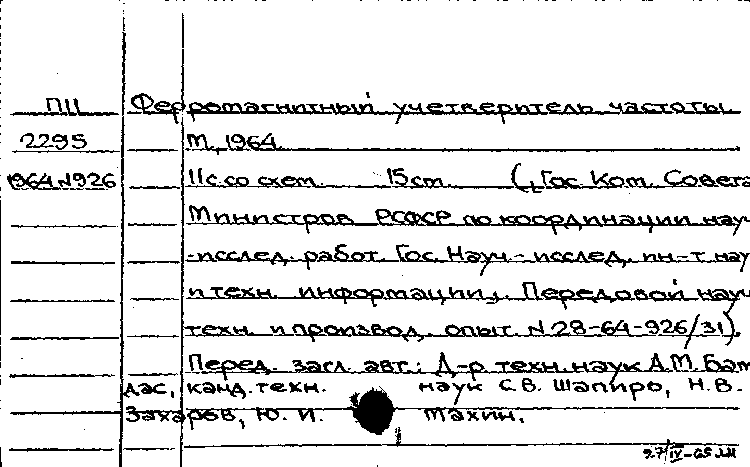 П11 Ферромагнитный учетверитель частоты.
2295 М., 1964.
1964 N926 11с. со схем. 15см. (Гос. Ком. Совета
Министров РСФСР по координации науч
-исслед. работ. Гос. Науч-исслед. ин-т нау
и техн. информации. Передовой науч
техн. и производ. опыт. N28-64-926/31).
Перед. загл. авт.: Д-р техн. наук А.М. Бам
дас, канд. техн. наук С.В. Шапиро, Н.В.
Захаров, Ю.И. Махин.